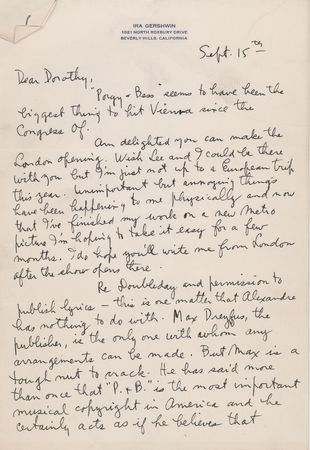 IRA GERSHWIN
1021 NORTH ROXBURY DRIVE
BEVERLY HILLS, CALIFORNIA
Sept. 15th
Dear Dorothy,
"Porgy & Bess" seems to have been the
biggest thing to hit Vienna since the
Congress Of.
Am delighted you can make the
London opening. Wish Lee and I could be there
with you but I'm just not up to a European trip
this year. Unimportant but annoying things
have been happening to me physically and now
that I've finished my work on a new Metro
picture I'm hoping to take it easy for a few
months. I do hope you'll write me from London
after the show opens there.
Re Doubleday and permission to
publish lyrics – this is one matter that Alexandre
has nothing to do with. Max Dreyfus, the
publisher, is the only one with whom any
arrangements can be made. But Max is a
tough nut to crack. He has said more
than once that "P. & B." is the most important
musical copyright in America and he
certainly acts as if he believes that